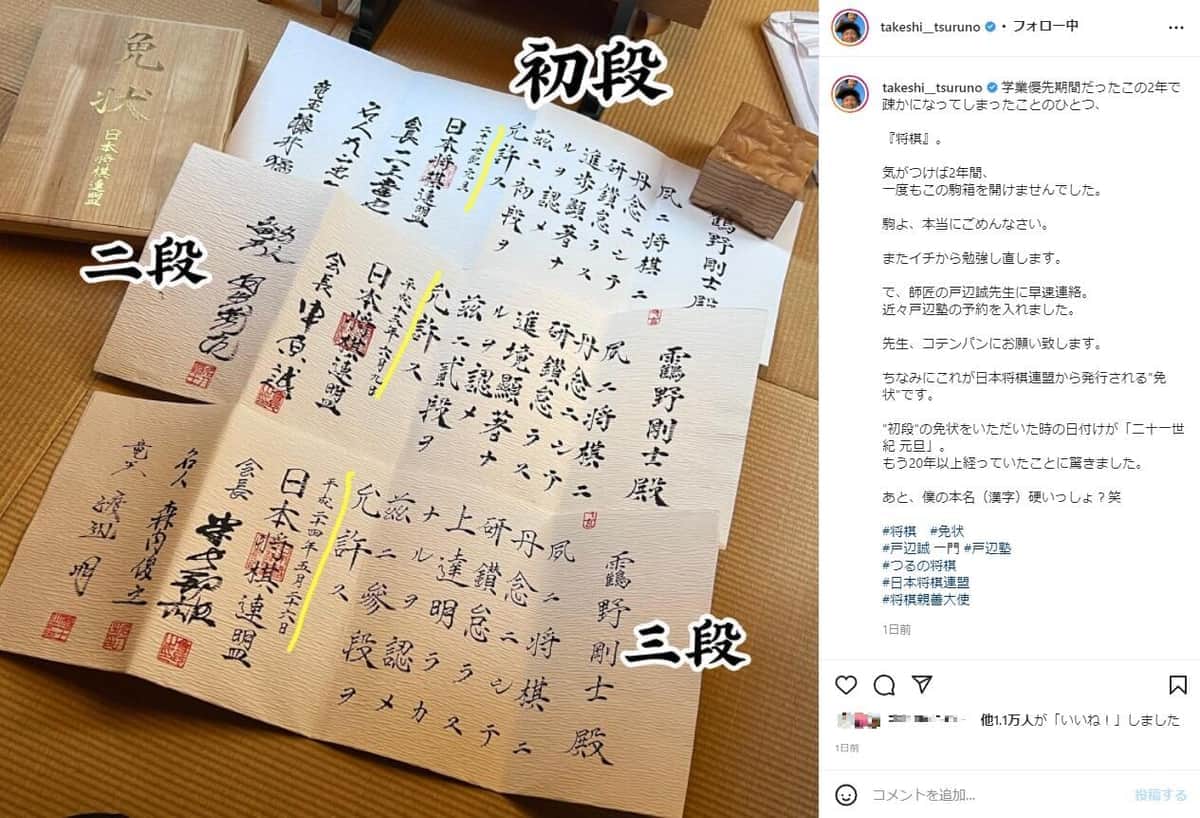 初段
靏野剛士殿
夙ニ将棋ニ
丹念ニシテ
研鑽怠ラス
進歩顕著ナ
ルヲ認メ
茲ニ初段ヲ
允許ス
二十一世紀元旦
日本将棋連盟
会長 二上達也
竜王 藤井猛
免状
日本将棋連盟
二段
靏野剛士殿
夙ニ将棋ニ
丹念ニシテ
研鑽怠ラス
進境顕著ナ
ルヲ認メ
茲ニ弐段ヲ
允許ス
平成十五年六月九日
日本将棋連盟
会長 中原誠
三段
靏野剛士殿
夙ニ将棋ニ
丹念ニシテ
研鑽怠ラス
上達明ラカ
ナルヲ認メ
茲ニ參段ヲ
允許ス
平成二十四年五月二十六日
日本将棋連盟
会長
名人 森内俊之
竜王 渡辺明
takeshi__tsuruno • フォロー中
takeshi__tsuruno 学業優先期間だったこの2年で
疎かになってしまったことのひとつ、
『将棋』。
気がつけば2年間、
一度もこの駒箱を開けませんでした。
駒よ、本当にごめんなさい。
またイチから勉強し直します。
で、師匠の戸辺誠先生に早速連絡。
近々戸辺塾の予約を入れました。
先生、コテンパンにお願い致します。
ちなみにこれが日本将棋連盟から発行される"免
状"です。
"初段"の免状をいただいた時の日付けが「二十一世
紀 元旦」。
もう20年以上経っていたことに驚きました。
あと、僕の本名（漢字）硬いっしょ？笑
#将棋 #免状
#戸辺誠 一門 #戸辺塾
#つるの将棋
#日本将棋連盟
#将棋親善大使
1日前
他1.1万人が「いいね！」しました
1日前
コメントを追加...
投稿する